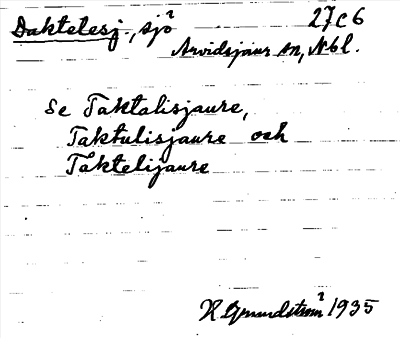 Daktelesj., sjö 27c6
Arvidsjaur sn, Nbl.
Se Taktalisjaure,
Taktulisjaure och
Taktelijaure
H. Grundström 1935